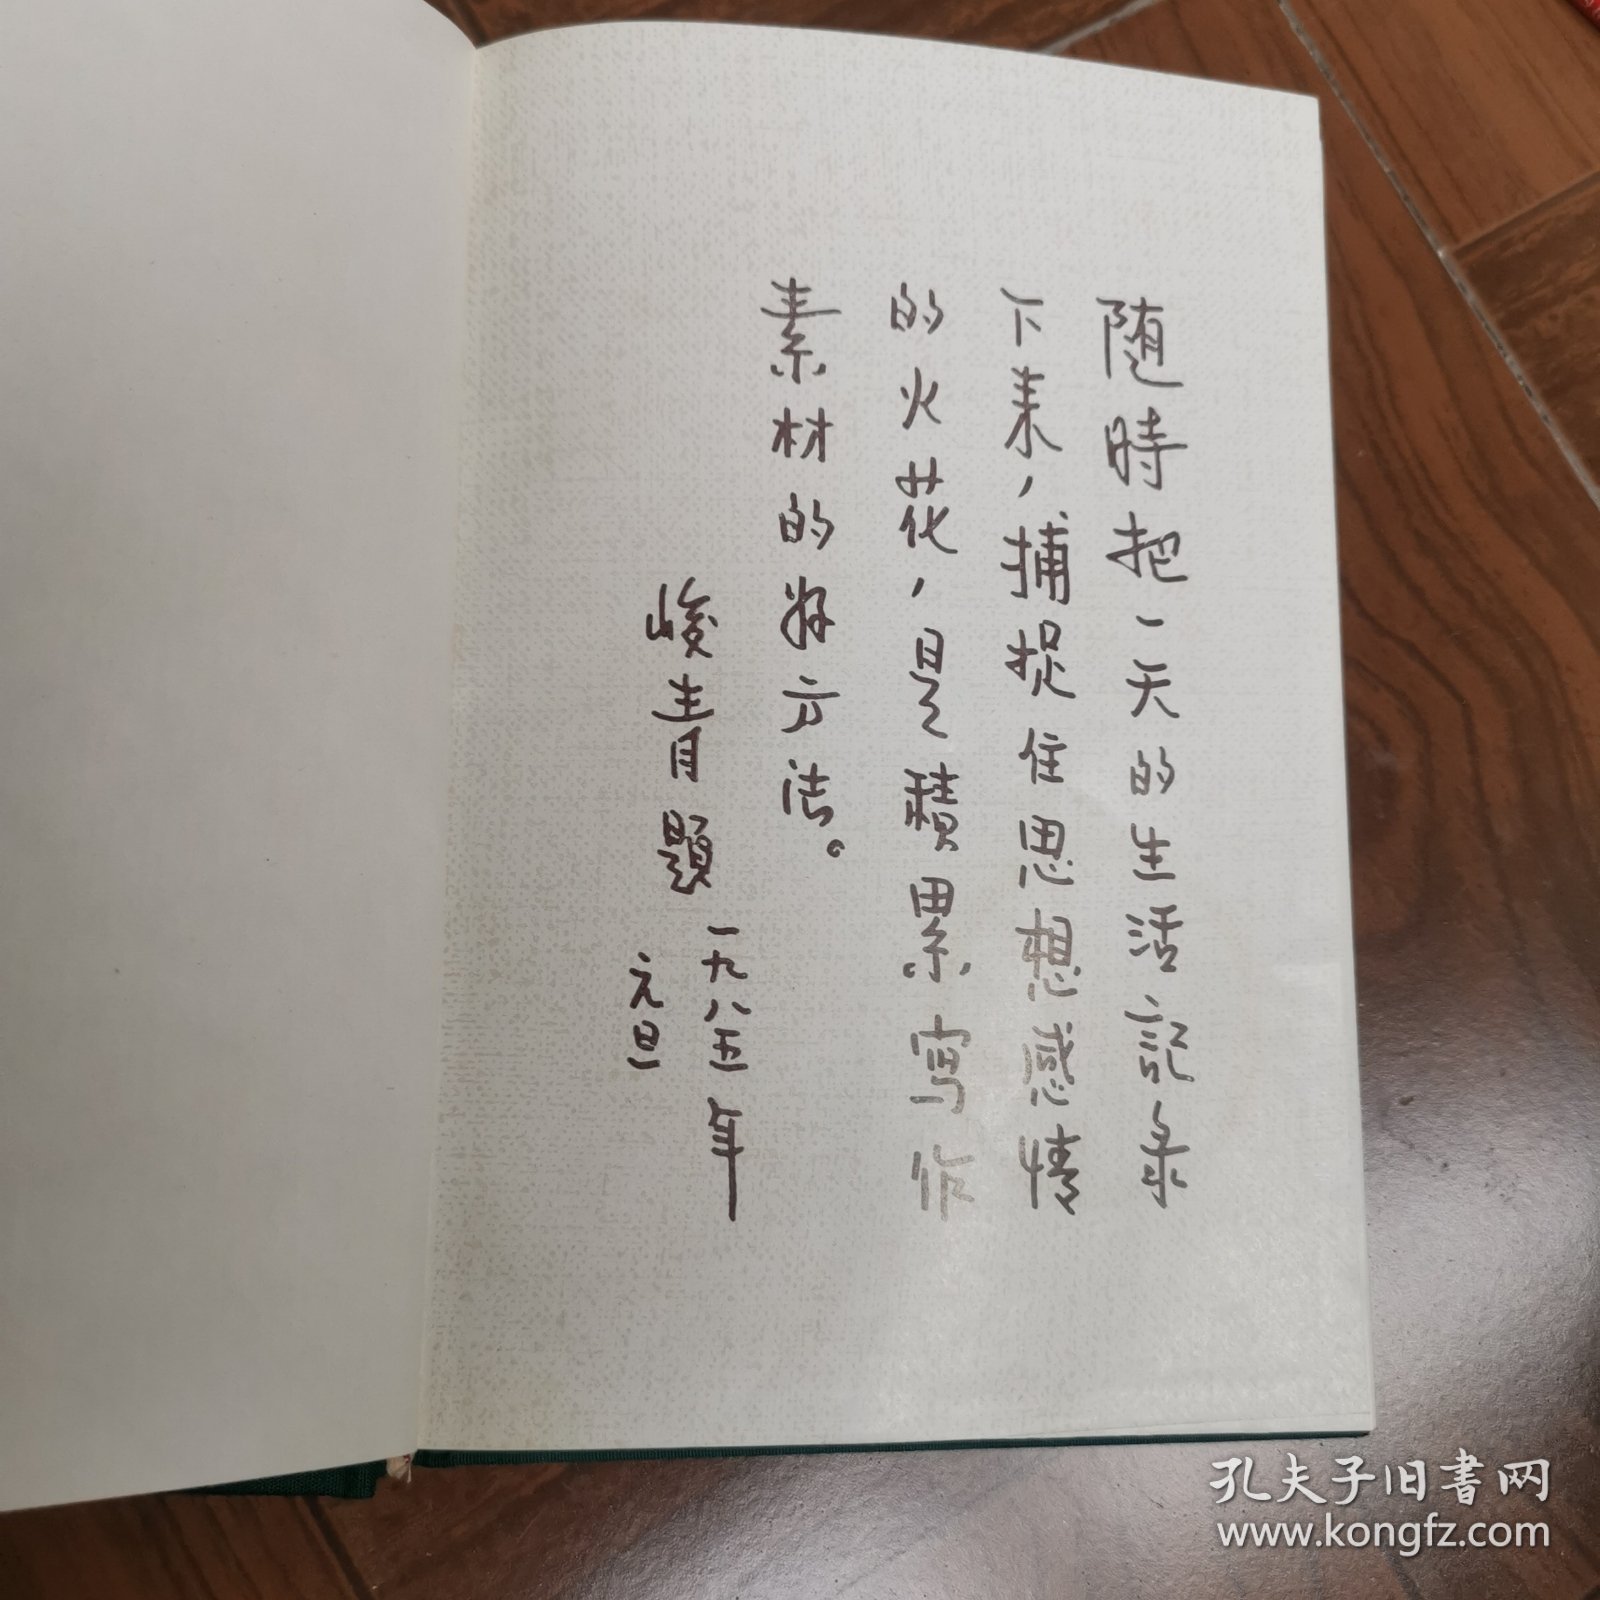 随時把一天的生活記录
下来，捕捉住思想感情
的火花，是積累寫作
素材的好方法。
峻青題 一九八五年
元旦
孔夫子旧書网
www.kongfz.com